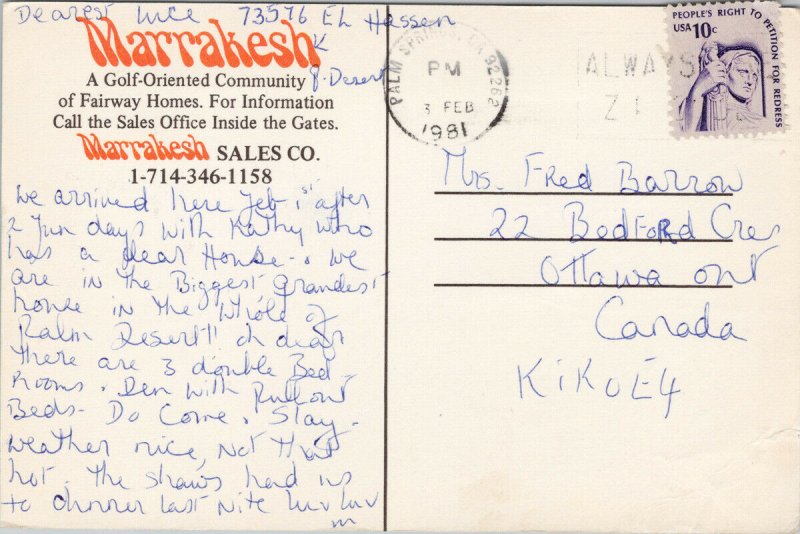 Dearest Luce 73576 El Hassen
Marrakesh
K
A Golf-Oriented Community
P. Desert
of Fairway Homes. For Information
Call the Sales Office Inside the Gates.
Marrakesh SALES CO.
1-714-346-1158
We arrived here Feb 1st after
2 fun days with Kathy who
has a dear House-. We
are in the Biggest Grandest
house in the whole of
Palm Desert!! oh dear
there are 3 double Bed-
rooms. Den with Pullout
Beds- Do Come. Stay-
weather nice, Not that
hot. The Shaws had us
to dinner last Nite luv luv
m
PALM SPRINGS, CA 92262
PM
3 FEB
1981
ALWAYS
ZI
PEOPLE'S RIGHT TO PETITION FOR REDRESS
USA 10c
Mrs. Fred Barrow
22 Bedford Cres
Ottawa Ont
Canada
K1K0E4